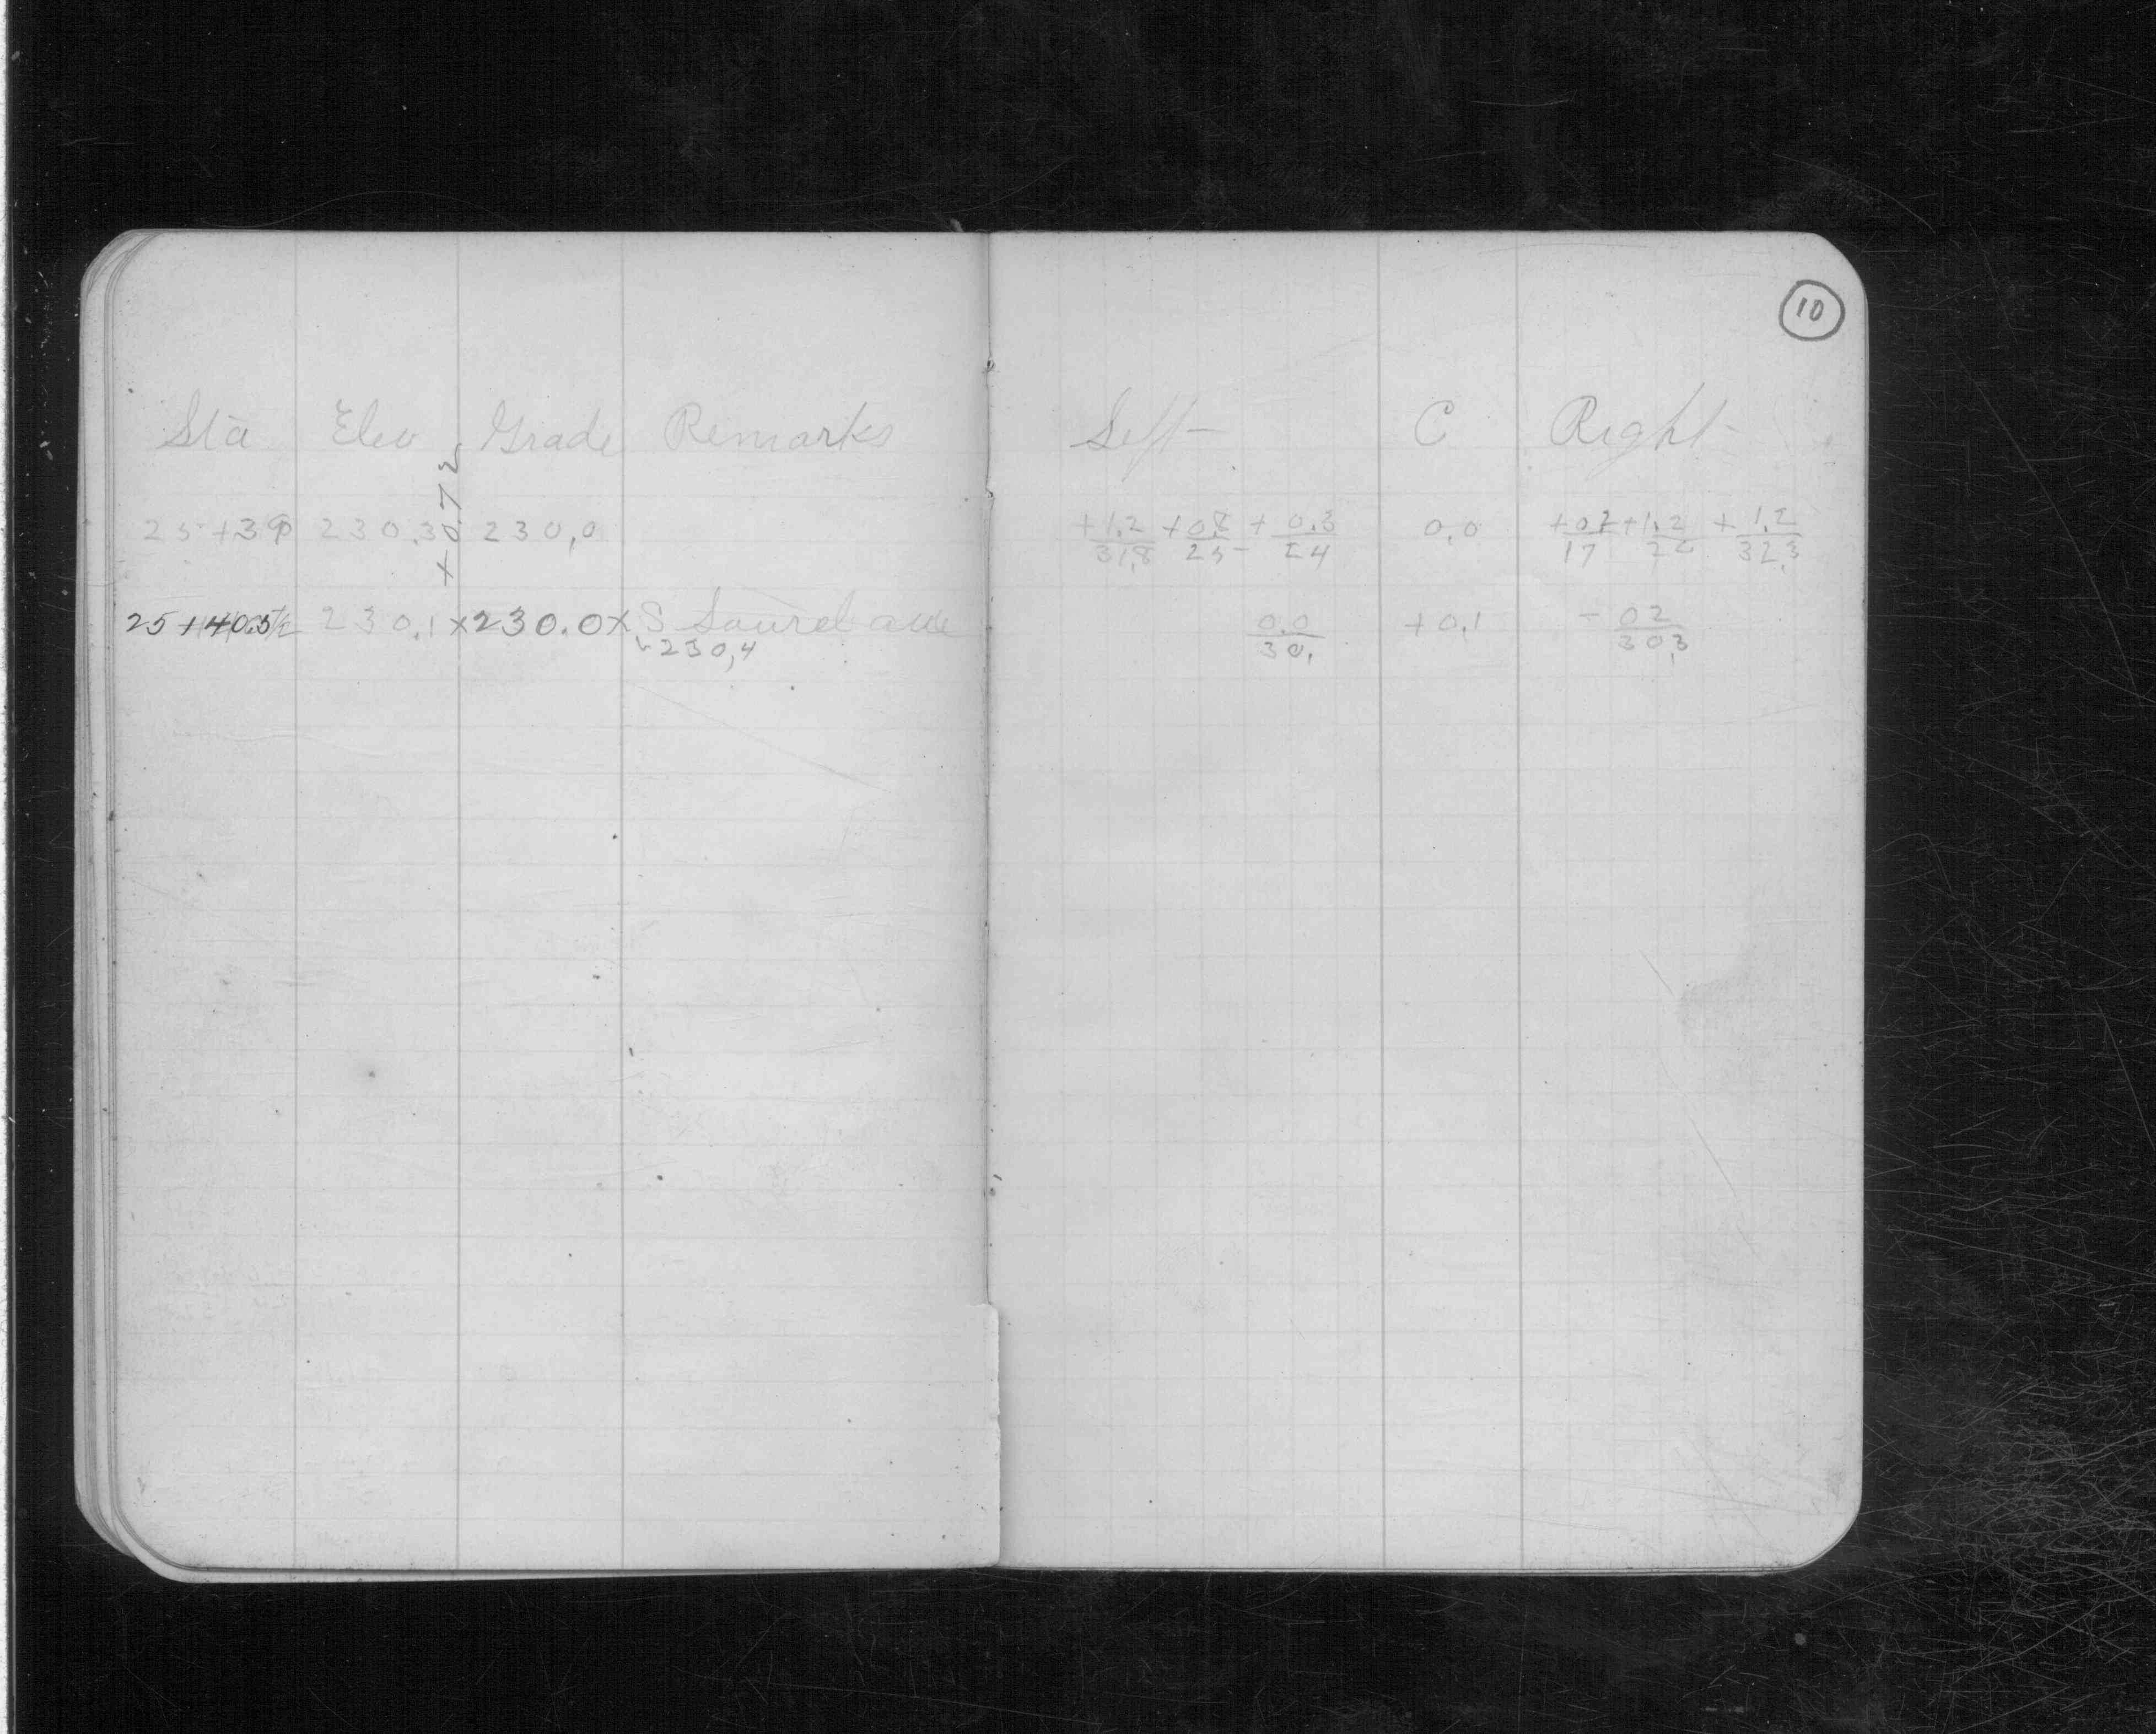 10
Sta Elev Grade Remarks Left C Right
+0.72
25+39 230.3 230.0 +1.2/31.8 +0.8/25 +0.3/24 0.0 +0.2/17 +1.2/22 +1.2/32.3
230.1 x 230.0 x S Laurel ave 0.0/30. +0.1 -0.2/30.3
230.4